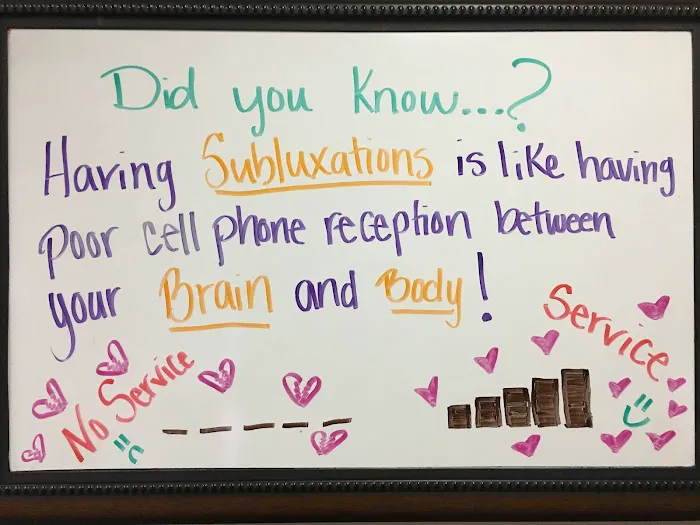 Did you know...?
Having Subluxations is like having
poor cell phone reception between
your Brain and Body!
No Service
Service